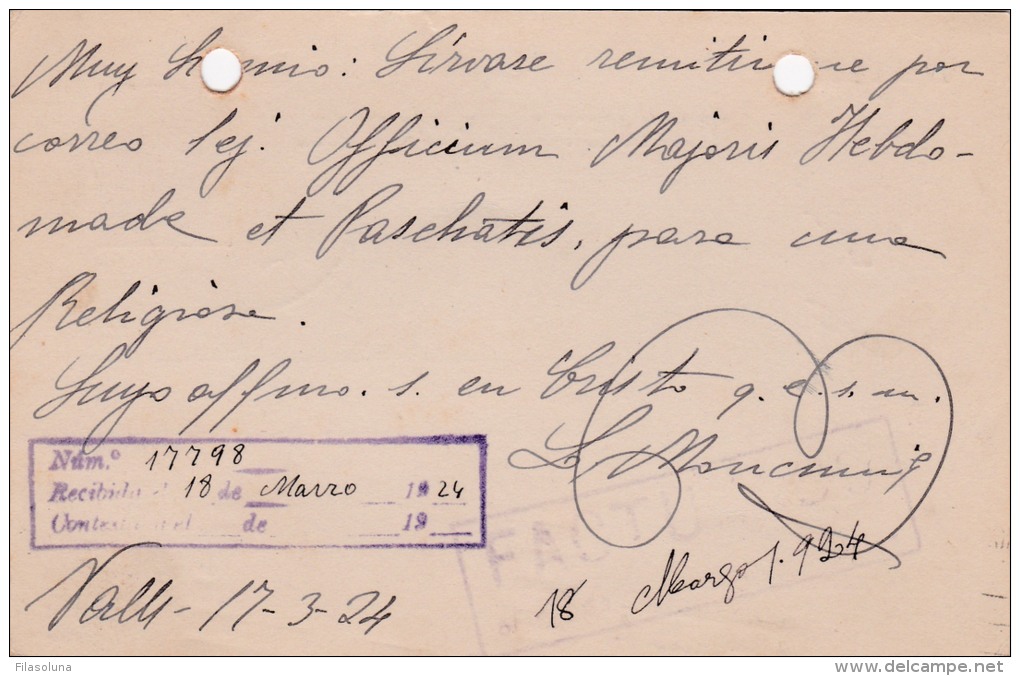 Muy Sr. mío: Sírvase remitirme por
correo 1 ej. Officium Majoris Hebdo-
madae et Paschatis, para una
Religiosa.
Suyo affmo. s. en Cristo q. e. s. m.
Núm.º 17798
Recibida el 18 de Marzo 1924
Contestada el de 19
Valls - 17-3-24
18 Marzo 1.924
Filasoluna
delcampe.net